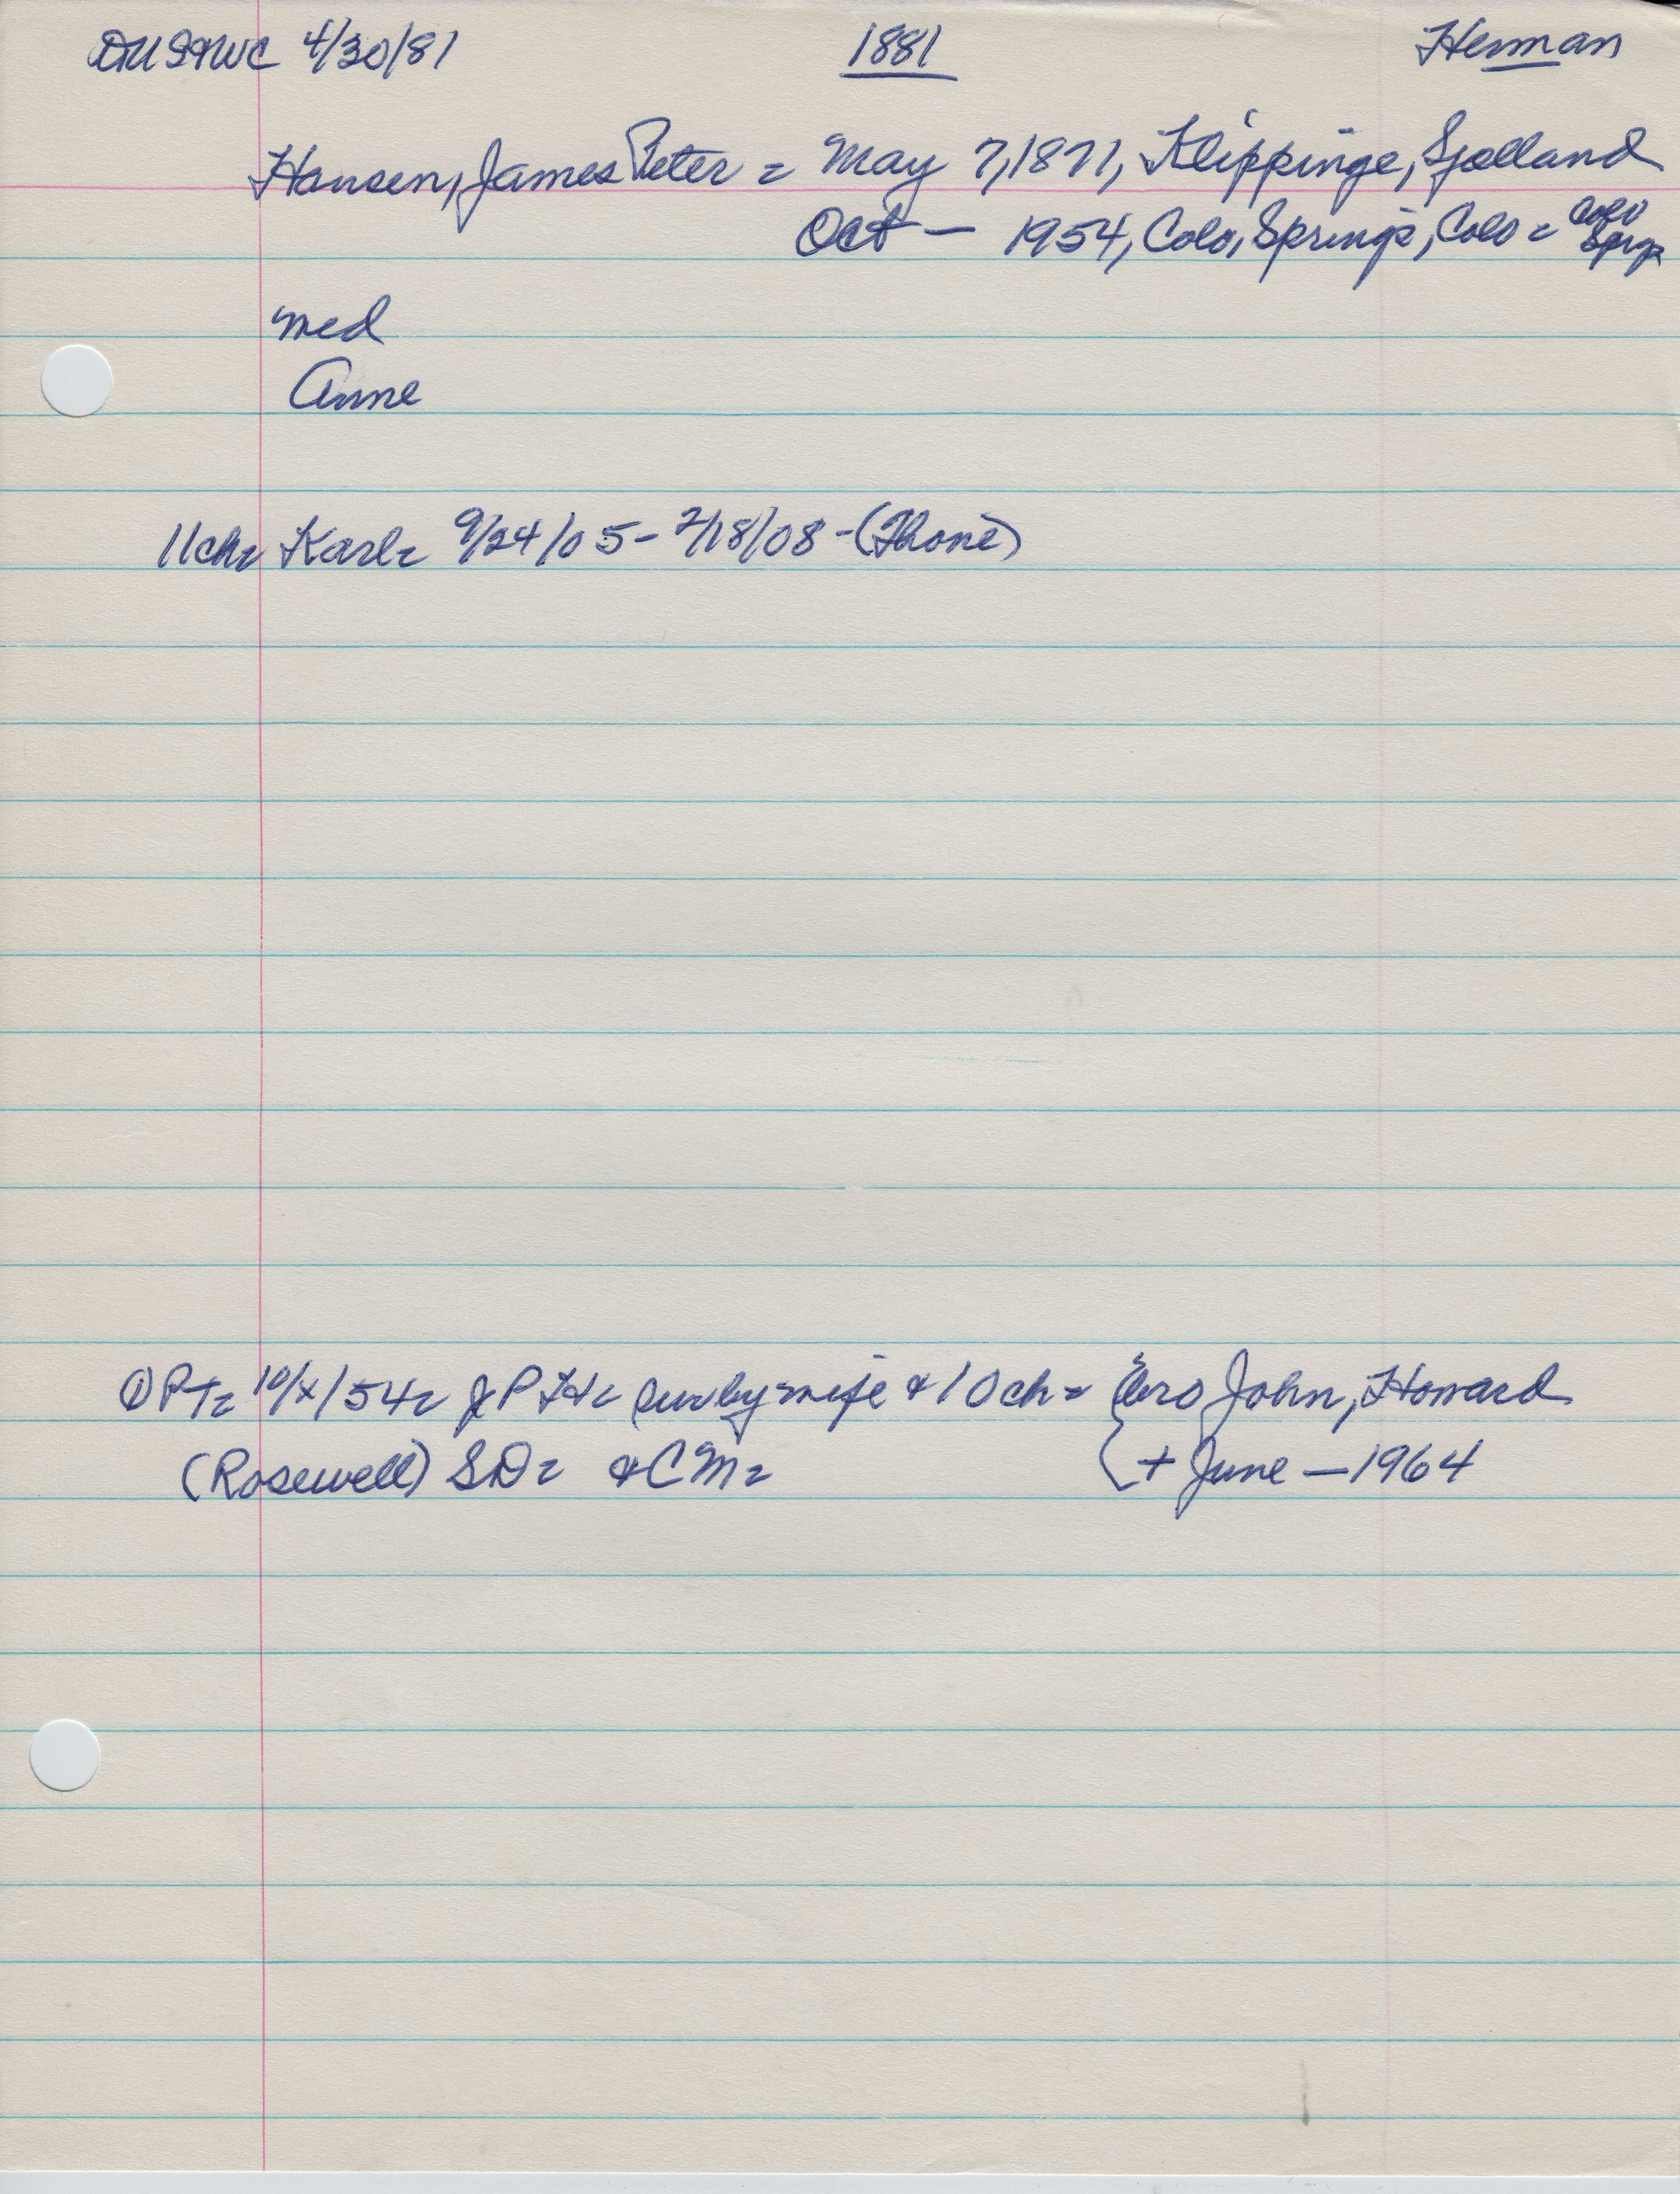 4/30/81 1881 Herman
Hansen, James Peter = May 7, 1871, Klippinge, Sjælland
Oct — 1954, Colo, Springs, Colo = Colo Sprgs
med
Anne
11ch= Karl= 9/24/05 - 2/18/08 - (Thone)
10/x/54= JPH= surbywife & 10ch = Bro John, Howard
(Rosewell) SD= & CM= + June — 1964